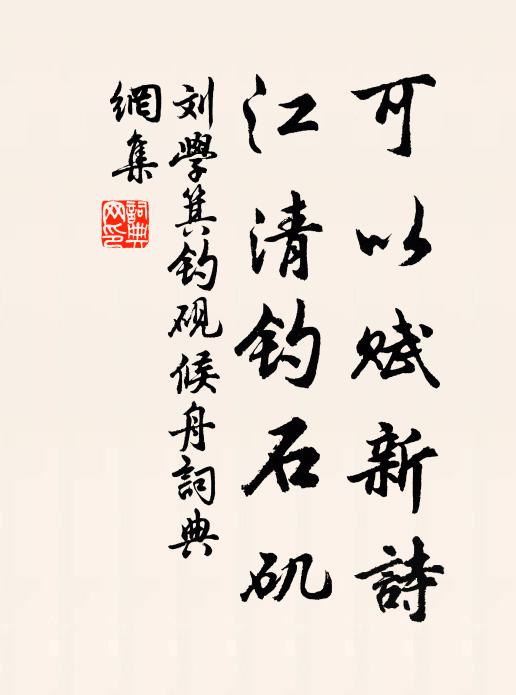 可以赋新詩
江清钓石矶
刘學箕钓砚候舟詞典
網集
詞典网印